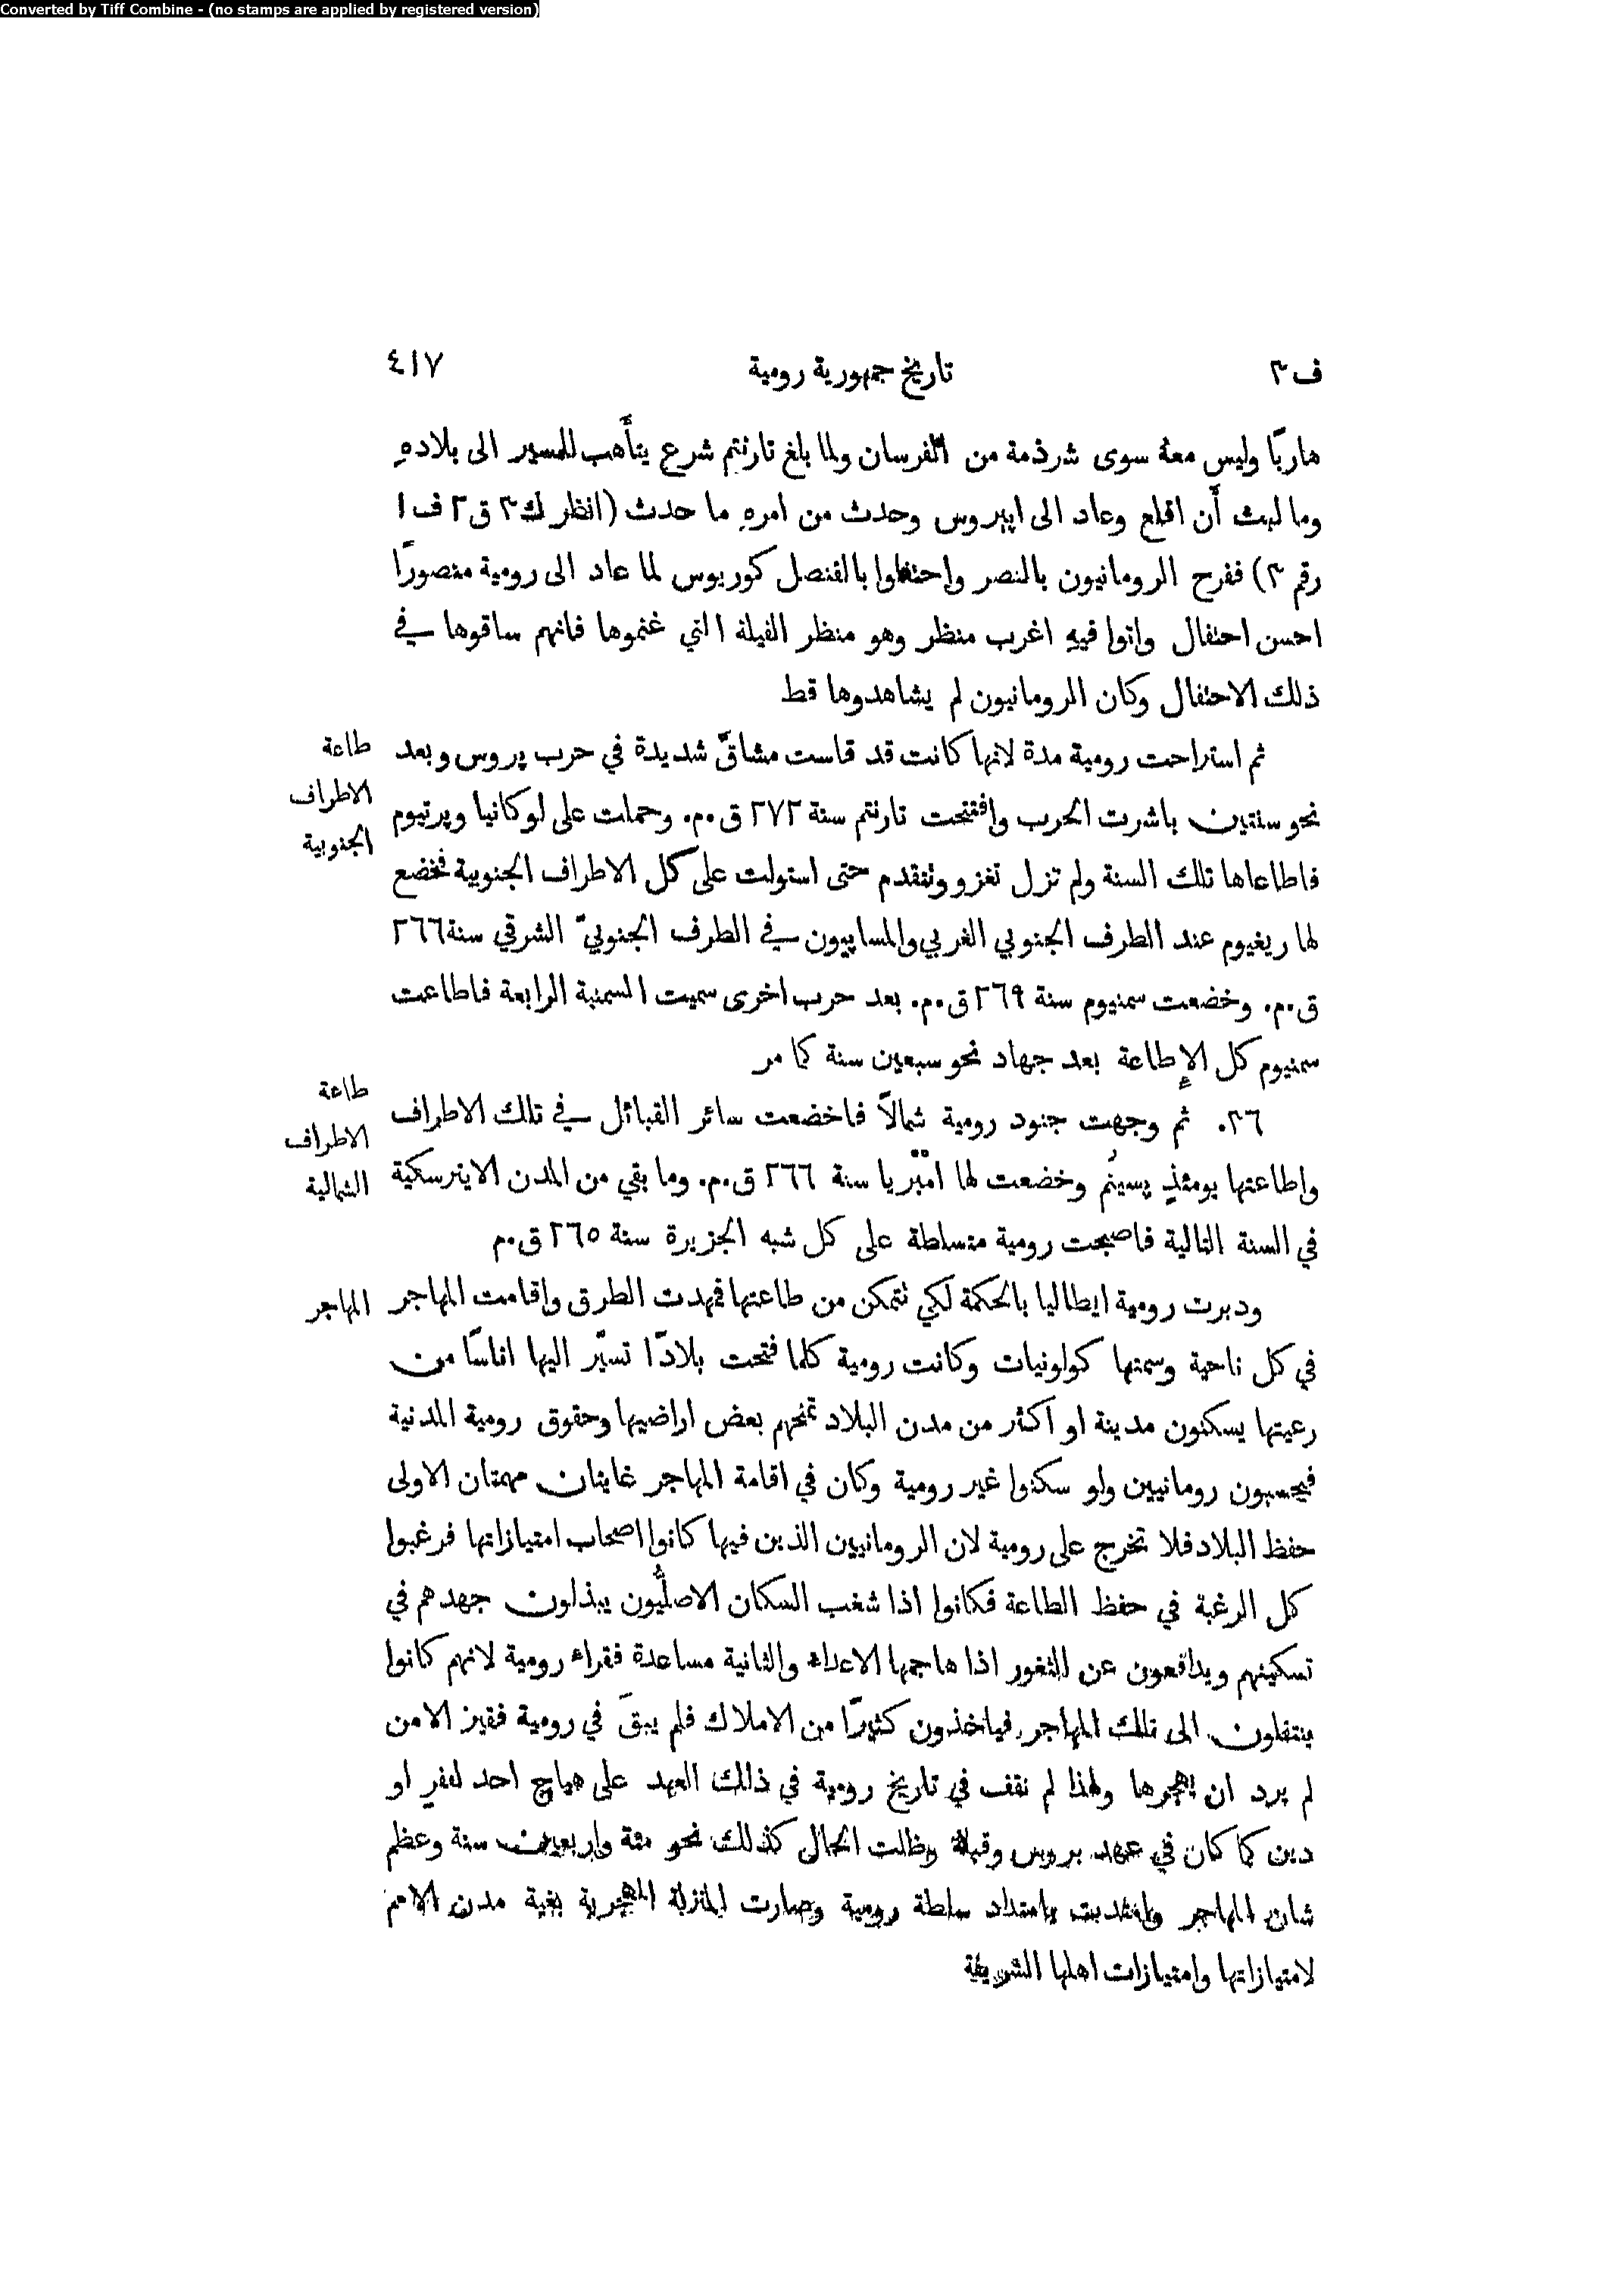 Converted by Tiff Combine - (no stamps are applied by registered version)
ف ٣ تاريخ جمهورية رومية ٤١٧
هاربًا وليس معهُ سوى شرذمة من الفرسان ولما بلغ تارنتم شرع يتأَهب للمسير الى بلادهِ
وما لبث أَن اقلع وعاد الى ابيروس وحدث من امرهِ ما حدث (انظر ك٣ ق٢ ف ١
رقم ٣) ففرح الرومانيون بالنصر واحتفلوا بالقنصل كوريوس لما عاد الى رومية منصورًا
احسن احتفال واتوا فيهِ اغرب منظر وهو منظر الفيلة التي غنموها فانهم ساقوها في
ذلك الاحتفال وكان الرومانيون لم يشاهدوها قط
طاعة
الاطراف
الجنوبية
ثم استراحت رومية مدة لانها كانت قد قاست مشاقّ شديدة في حرب پروس وبعد
نحو سنتين باشرت الحرب وافتتحت تارنتم سنة ٢٧٢ ق.م. وحملت على لوكانيا وپرتيوم
فاطاعاها تلك السنة ولم تزل تغزو وتتقدم حتى استولت على كل الاطراف الجنوبية فخضع
لها ريغيوم عند الطرف الجنوبي الغربي والمساپيون في الطرف الجنوبيّ الشرقي سنة ٢٦٦
ق.م. وخضعت سمنيوم سنة ٢٦٩ ق.م. بعد حرب اخرى سميت السمنية الرابعة فاطاعت
سمنيوم كل الإِطاعة بعد جهاد نحو سبعين سنة كما مر
طاعة
الاطراف
الشمالية
٣٦. ثم وجهت جنود رومية شمالاً فاخضعت سائر القبائل في تلك الاطراف
واطاعتها يومئذٍ پسينُم وخضعت لها امبريا سنة ٢٦٦ ق.م. وما بقي من المدن الايترسكية
في السنة التالية فاصبحت رومية متسلطة على كل شبه الجزيرة سنة ٢٦٥ ق.م
المهاجر
ودبرت رومية ايطاليا بالحكمة لكي تتمكن من طاعتها فمهدت الطرق واقامت المهاجر
في كل ناحية وسمتها كولونيات وكانت رومية كلما فتحت بلادًا تسيّر اليها اناسًا من
رعيتها يسكنون مدينة او اكثر من مدن البلاد تمنحهم بعض اراضيها وحقوق رومية المدنية
فيحسبون رومانيين ولو سكنوا غير رومية وكان في اقامة المهاجر غايتان مهمتان الاولى
حفظ البلاد فلا تخرج على رومية لان الرومانيين الذين فيها كانوا اصحاب امتيازاتها فرغبوا
كل الرغبة في حفظ الطاعة فكانوا اذا شغب السكان الاصليُّون يبذلون جهدهم في
تسكينهم ويدافعون عن الثغور اذا هاجمها الاعداء والثانية مساعدة فقراء رومية لانهم كانوا
ينتقلون الى تلك المهاجر فياخذون كثيرًا من الاملاك فلم يبقَ في رومية فقير الا من
لم يرد ان يهجرها ولهذا لم نقف في تاريخ رومية في ذلك العهد على هياج احد لفقرٍ او
دين كما كان في عهد بروس وقبلهُ وظلت الحال كذلك نحو مئة واربعين سنة وعظم
شان المهاجر وامتدت بامتداد سلطة رومية وصارت المنزلة المهجرية بغية مدن الامم
لامتيازاتها وامتيازات اهلها الشريفة